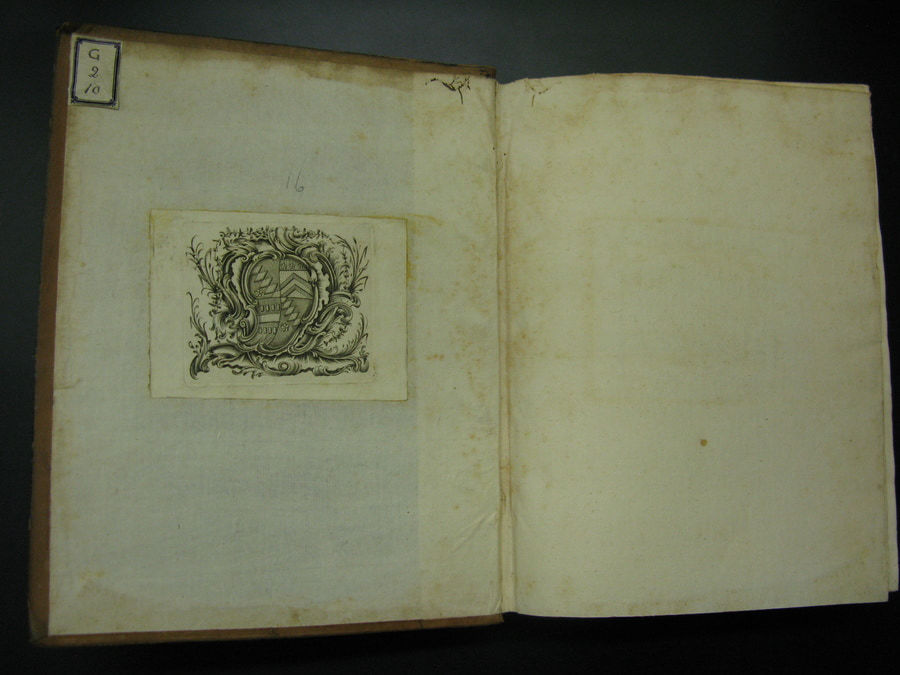 G
2
10
16